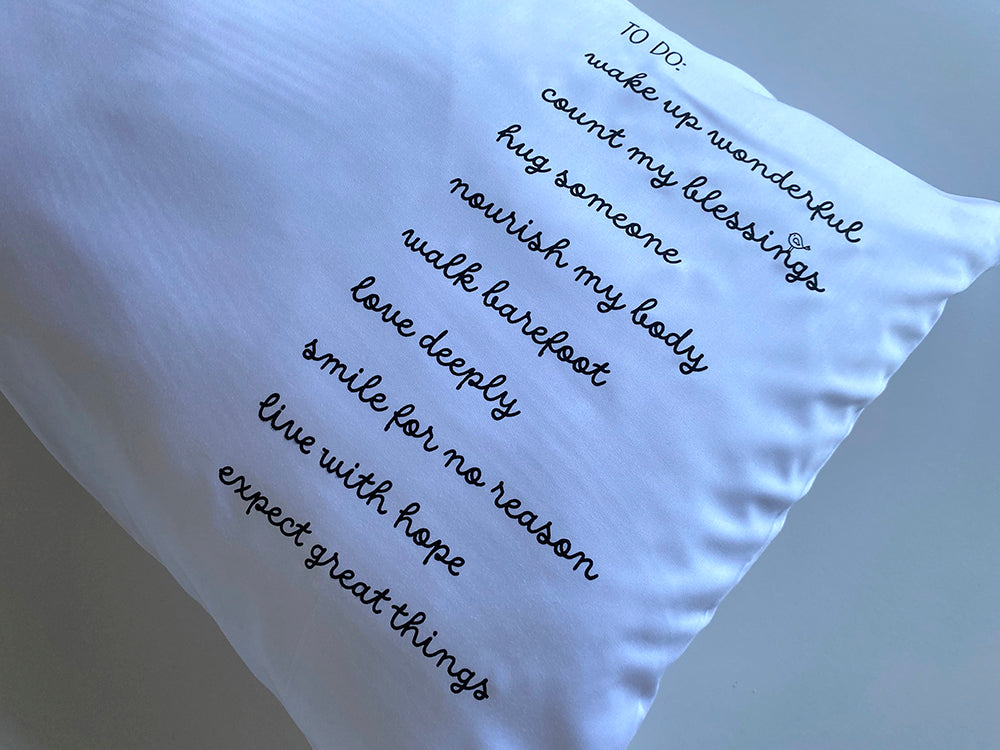 TO DO:
wake up wonderful
count my blessings
hug someone
nourish my body
walk barefoot
love deeply
smile for no reason
live with hope
expect great things